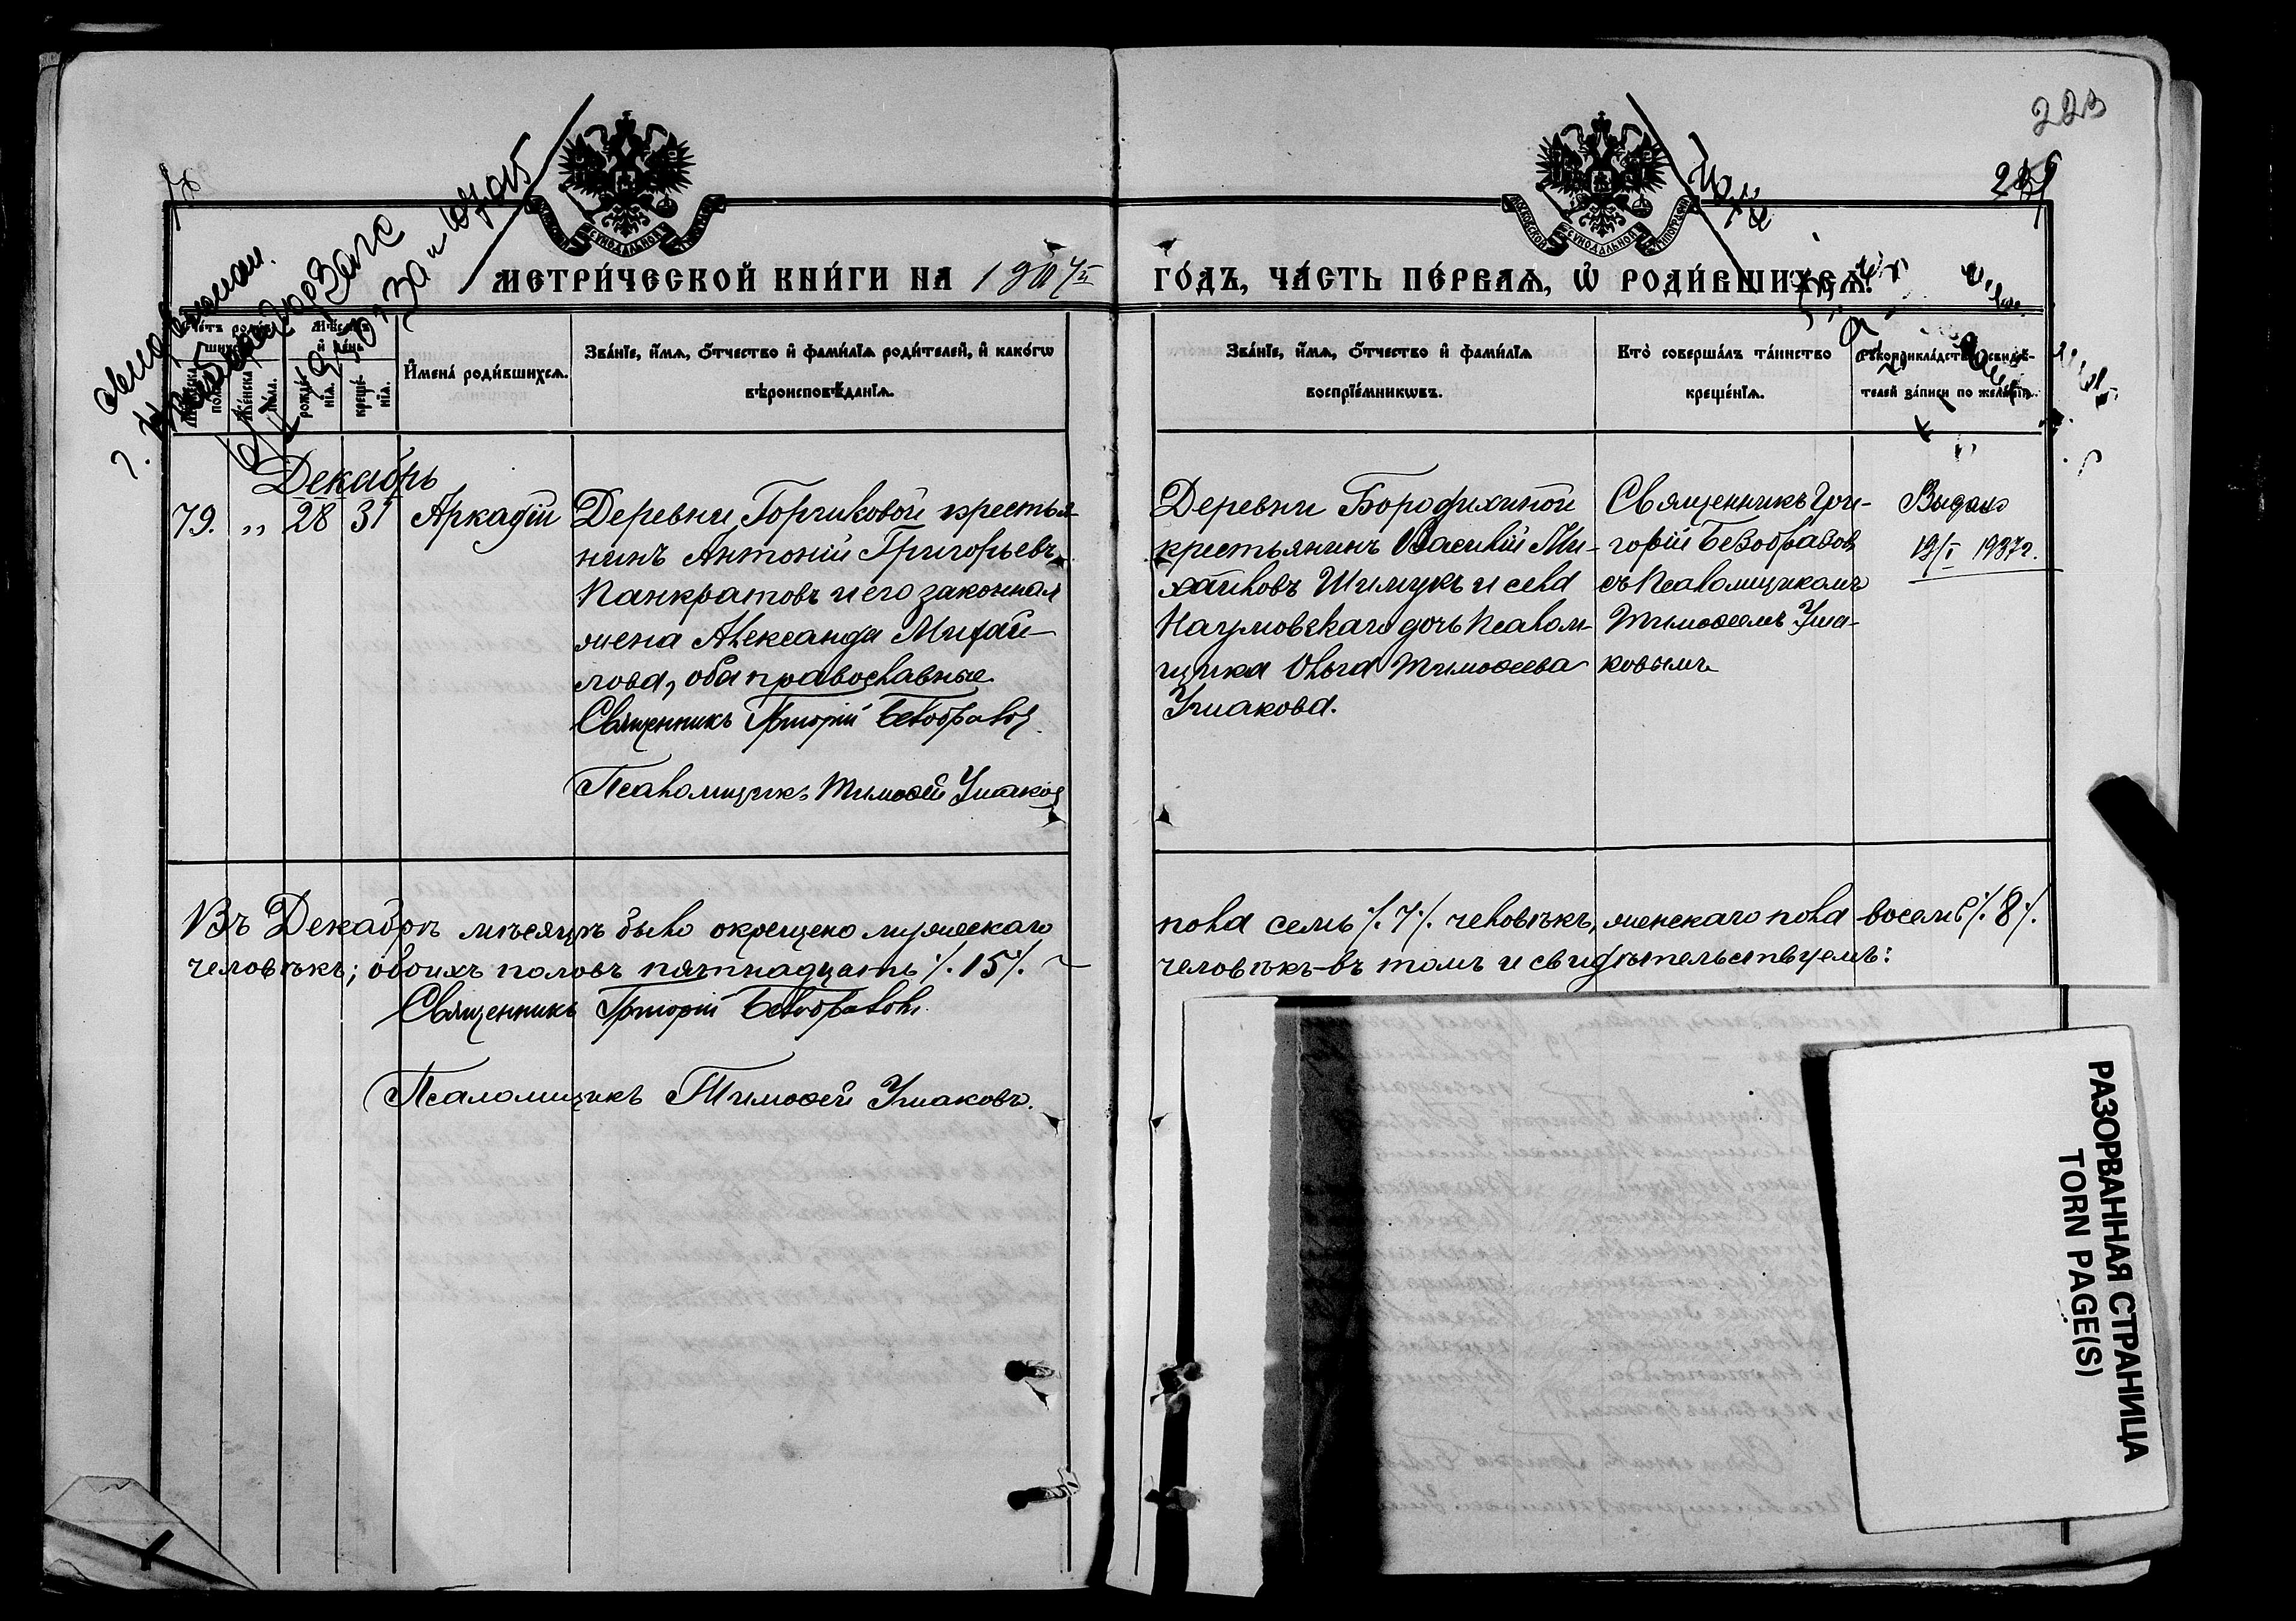 223
МОСКОВСКОЙ СѴНОДАЛЬНОЙ ТИПОГРАФІИ
МОСКОВСКОЙ СѴНОДАЛЬНОЙ ТИПОГРАФІИ
МЕТРИ́ЧЕСКОЙ КНИ́ГИ НА
ГО́ДЪ, ЧА́СТЬ ПЕ́РВАѦ, Ѽ РОДИ́ВШИХСѦ.
И҆мена̀ роди́вшихсѧ.
Зва́нїе, и҆́мѧ, ѻ҆́тчество и҆ фамѝлїѧ роди́телей, и҆ како́гѡ
вѣроисповѣ́данїѧ.
Зва́нїе, и҆́мѧ, ѻ҆́тчество и҆ фамѝлїѧ
воспрїе́мникѡвъ.
Кто̀ соверша́лъ та́инство
креще́нїѧ.
телей за́писи по жела́нїю.
Декабрь
79. „ 28 31 Аркадій
Деревни Горчиковой крестья-
нинъ Антоній Григорьевъ
Панкратовъ и его законная
жена Александра Михай-
лова, оба православные.
Священникъ Григорій Безобразов
Псаломщикъ Тимоѳей Ушаков
Деревни Бородихиной
крестьянинъ Василій Ми-
хайловъ Шимукъ и села
Наумовскаго дочь псалом-
щика Ольга Тимоѳеева
Ушакова.
Священникъ Гри-
горій Безобразов
съ псаломщикомъ
Тимоѳеемъ Уша-
ковымъ
Выдано
19/I 1937г.
Въ Декабрѣ мѣсяцѣ было окрещено мужескаго
пола семь /.7/. человѣкъ, женскаго пола восемь /.8/.
человѣкъ; обоихъ половъ пятнадцать /.15/.
человѣкъ въ томъ и свидѣтельствуемъ:
Священникъ Григорій Безобразовъ.
Псаломщикъ Тимоѳей Ушаковъ.
РАЗОРВАННАЯ СТРАНИЦА
TORN PAGE(S)